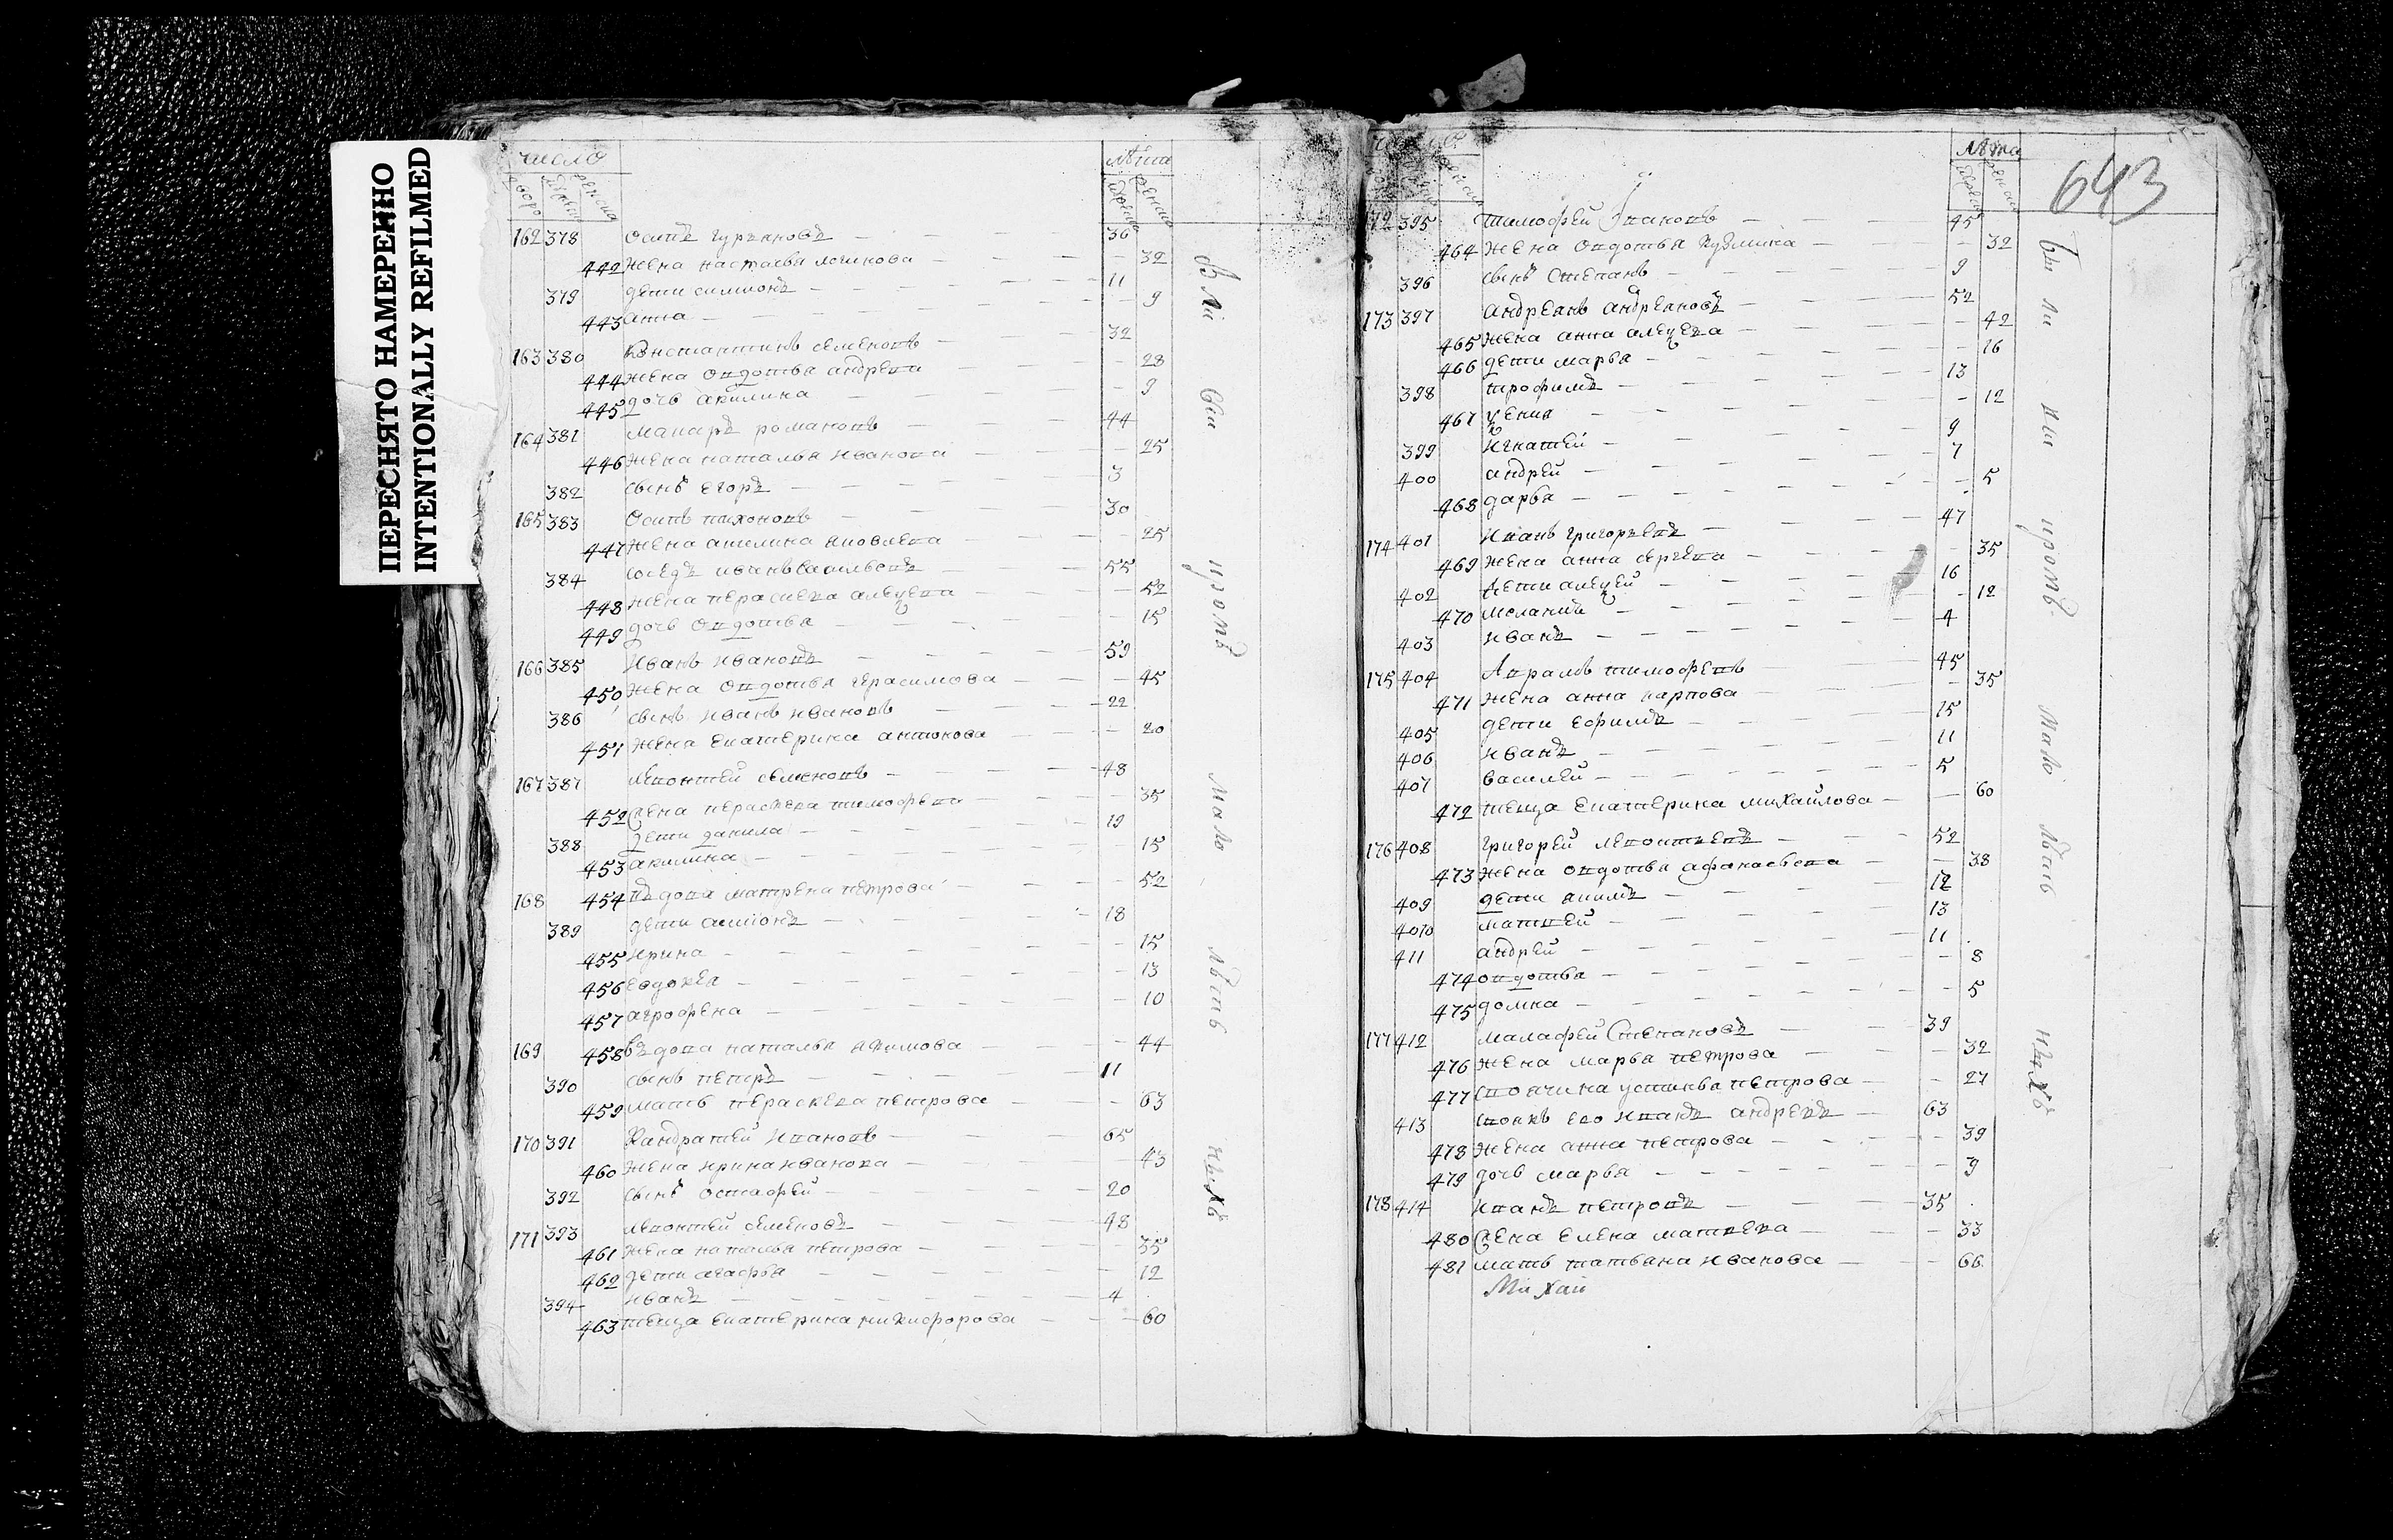 ПЕРЕСНЯТО НАМЕРЕННО
INTENTIONALLY REFILMED
число лѣта
162 378 осипъ гурьяновъ 36
442 жена настасья логинова 32
379 дети симионъ 11
443 анна 9
163 380 константинъ семеновъ 32
444 жена овдотья андреева 28
445 дочь акилина 9
164 381 макаръ романовъ 44
446 жена наталья иванова 25
382 сынъ егоръ 3
165 383 осипъ тихоновъ 30
447 жена акилина яковлева 25
384 соседъ иванъ васильевъ 55
448 жена пераскева алецеева 52
449 дочь овдотья 15
166 385 иванъ ивановъ 59
450 жена овдотья герасимова 45
386 сынъ иванъ ивановъ 22
451 жена екатерина антонова 20
167 387 левонтей семеновъ 48
452 жена пераскева тимофеева 35
388 дети данила 19
453 акилина 15
168 454 въдова матрена петрова 52
389 дети симионъ 18
455 ирина 15
456 евдокея 13
457 агрофена 10
169 458 въдова наталья якимова 44
390 сынъ петръ 11
459 мать пераскева петрова 63
170 391 кандратей ивановъ 65
460 жена ирина иванова 43
392 сынъ остафей 20
171 393 левонтей семеновъ 48
461 жена наталья петрова 35
462 дети агафья 12
394 иванъ 4
463 теща екатерина никифорова 60
643
лѣта
172 395 тимофей ивановъ 45
464 жена овдотья кузмина 32
396 сынъ степанъ 9
173 397 андреянъ андреяновъ 52
465 жена анна алецеева 42
466 дети марья 16
398 трофимъ 13
467 цения 12
399 игнатей 9
400 андрей 7
468 дарья 5
174 401 иванъ григорьевъ 47
469 жена анна сергеева 35
402 дети алецей 16
470 меланья 12
403 иванъ 4
175 404 аврамъ тимофеевъ 45
471 жена анна карпова 35
405 дети ефимъ 15
406 иванъ 11
407 василей 5
472 теща екатерина михайлова 60
176 408 григорей левонтьевъ 52
473 жена овдотья афонасьева 38
409 дети якимъ 17
4010 матвей 13
411 андрей 11
474 овдотья 8
475 домна 5
177 412 малафей степановъ 39
476 жена марья петрова 32
477 своячина устинья петрова 27
413 своякъ его иванъ андреевъ 63
478 жена анна петрова 39
479 дочь марья 9
178 414 иванъ петровъ 35
480 жена елена матвеева 33
481 мать татьяна иванова 66
Михай